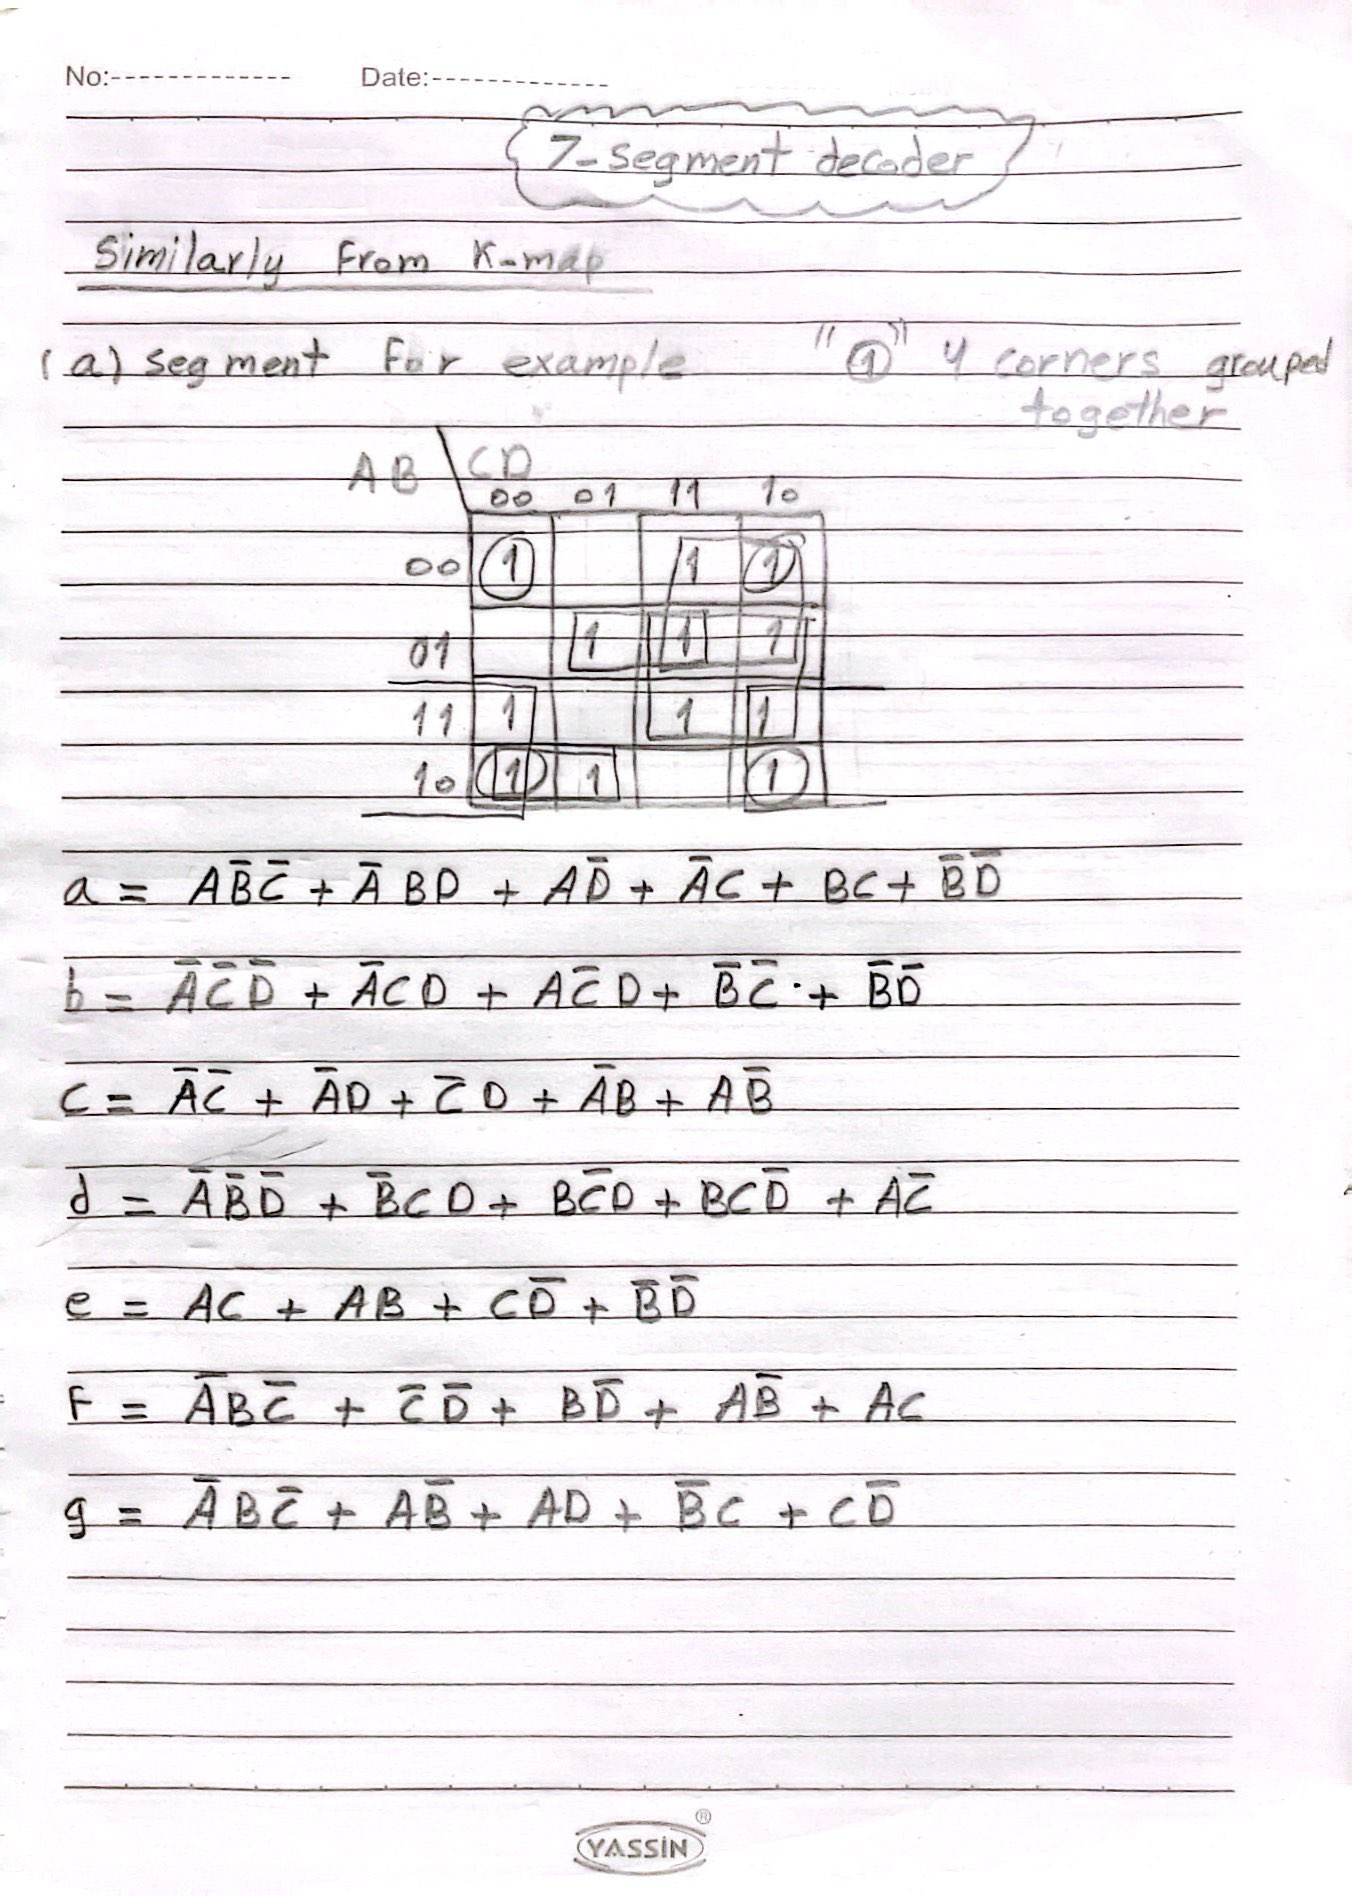 No:-------------- Date:--------------
7-segment decader
Similarly From K-map
(a) segment For example "①" 4 corners grouped
together
AB CD
00 01 11 10
00 1 1 1
01 1 1 1
11 1 1 1
10 1 1 1
a = AB̅C̅ + A̅BD + AD̅ + A̅C + BC + B̅D̅
b = A̅C̅D̅ + A̅CD + AC̅D + B̅C̅ + B̅D̅
c = A̅C̅ + A̅D + C̅D + A̅B + AB̅
d = A̅B̅D̅ + B̅CD + BC̅D + BCD̅ + AC̅
e = AC + AB + CD̅ + B̅D̅
F = A̅BC̅ + C̅D̅ + BD̅ + AB̅ + AC
g = A̅BC̅ + AB̅ + AD + B̅C + CD̅
YASSİN ®